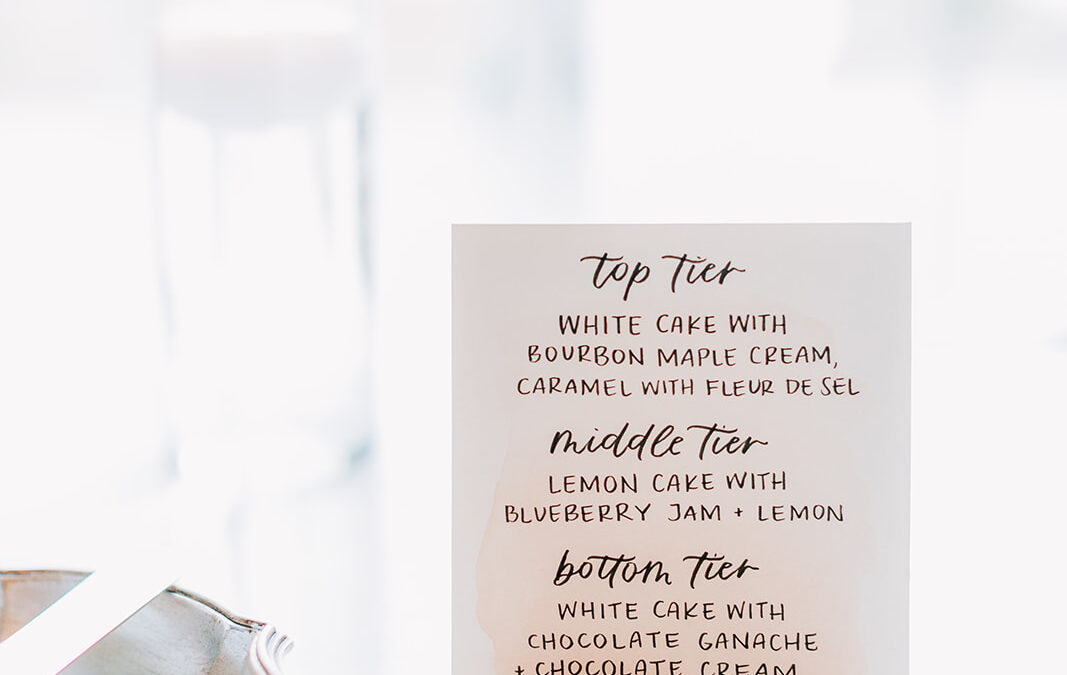 top tier
WHITE CAKE WITH
BOURBON MAPLE CREAM,
CARAMEL WITH FLEUR DE SEL
middle tier
LEMON CAKE WITH
BLUEBERRY JAM + LEMON
bottom tier
WHITE CAKE WITH
CHOCOLATE GANACHE
+ CHOCOLATE CREAM